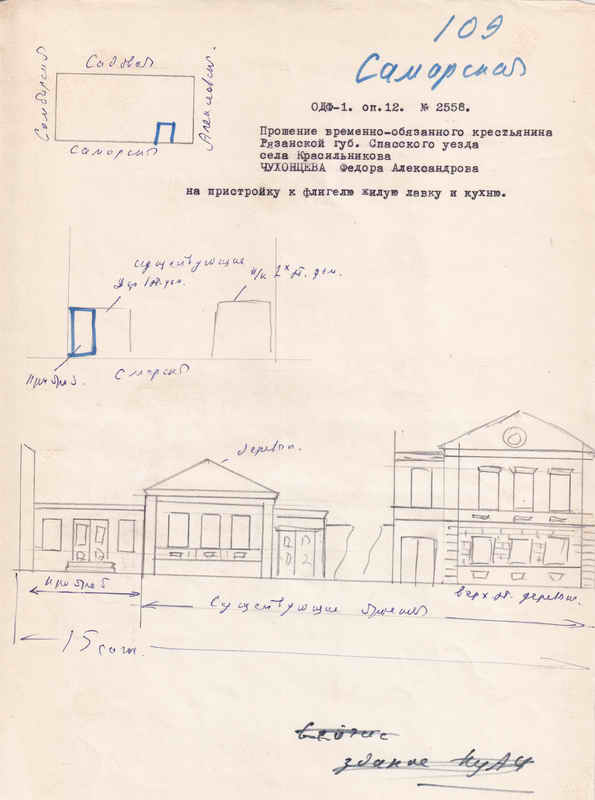 109
Самарская
Садовая
Симбирская
Алексеевск.
Самарская
ОДФ-1. оп.12. № 2558.
Прошение временно-обязанного крестьянина
Рязанской губ. Спасского уезда
села Красильникова
ЧУХОНЦЕВА Федора Александрова
на пристройку к флигелю жилую лавку и кухню.
существующие
2х эт. дом.
пристрой
деревян.
пристрой
Существующие строения
верх эт. деревян.
15 саж.
здание